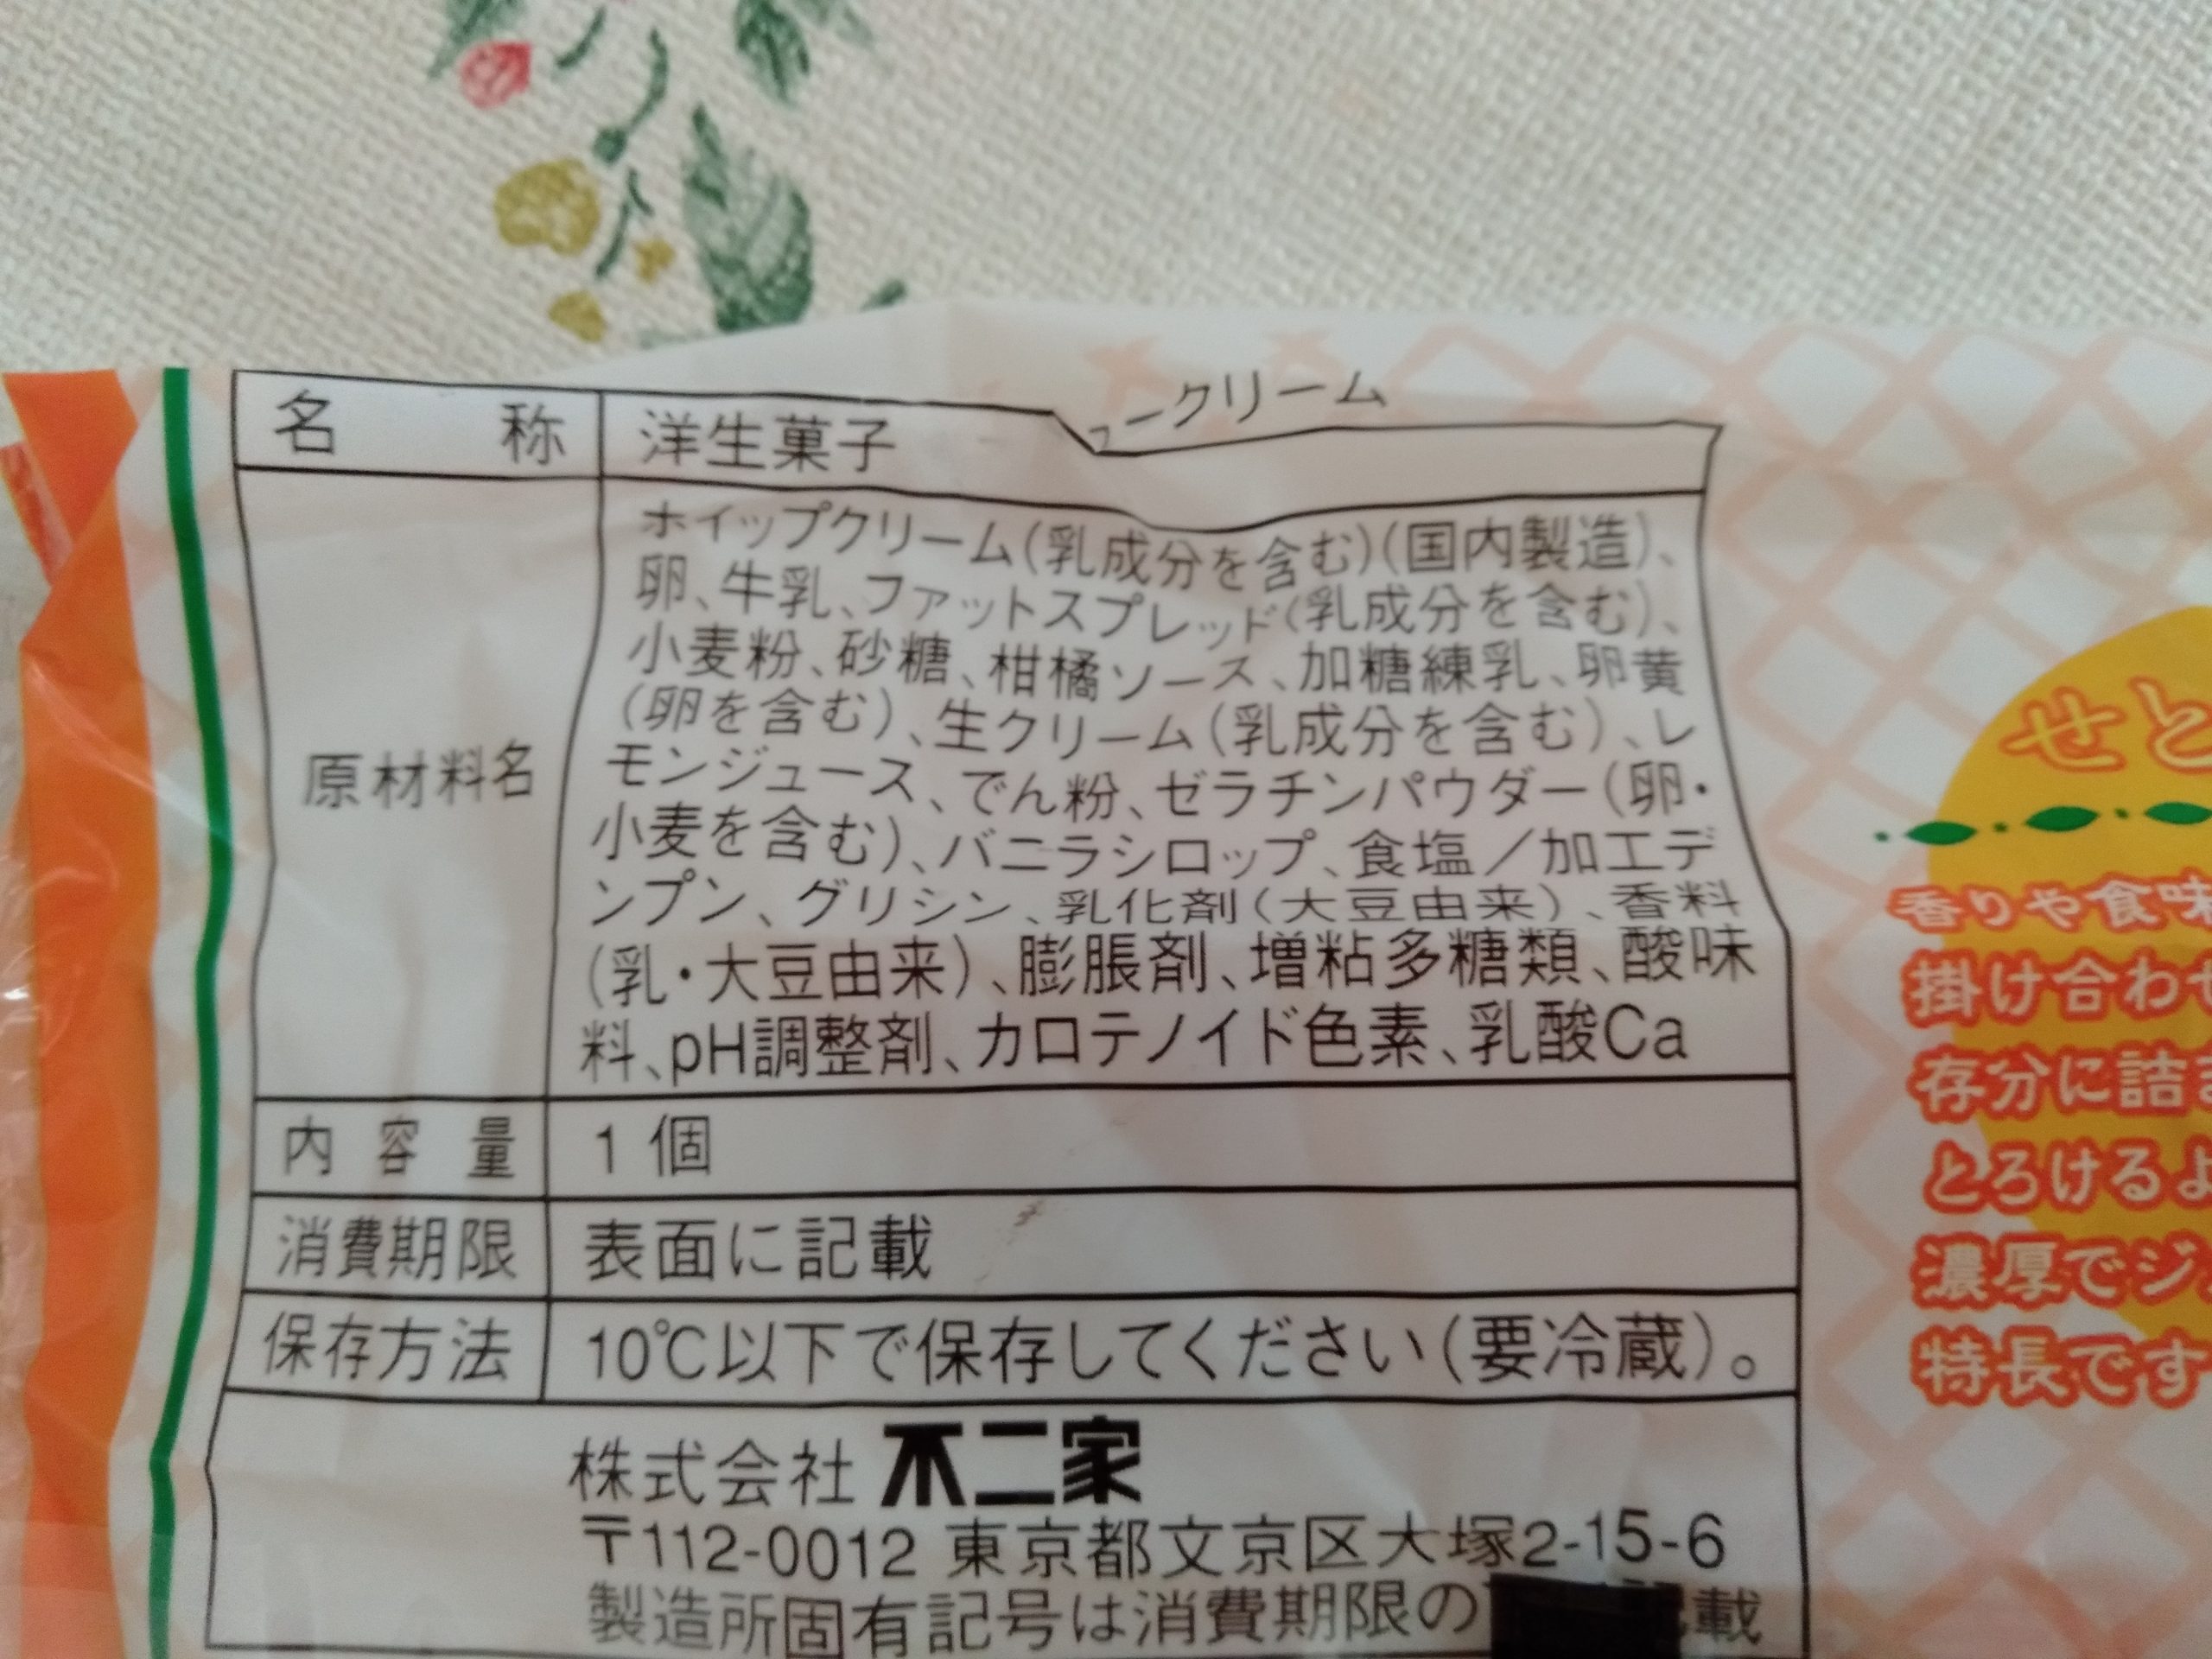 名称 洋生菓子
ュークリーム
原材料名
ホイップクリーム(乳成分を含む)(国内製造)、
卵、牛乳、ファットスプレッド(乳成分を含む)、
小麦粉、砂糖、柑橘ソース、加糖練乳、卵黄
(卵を含む)、生クリーム(乳成分を含む)、レ
モンジュース、でん粉、ゼラチンパウダー(卵・
小麦を含む)、バニラシロップ、食塩/加工デ
ンプン、グリシン、乳化剤(大豆由来)、香料
(乳・大豆由来)、膨脹剤、増粘多糖類、酸味
料、pH調整剤、カロテノイド色素、乳酸Ca
内容量 1個
消費期限 表面に記載
保存方法 10℃以下で保存してください(要冷蔵)。
株式会社 不二家
〒112-0012 東京都文京区大塚2-15-6
製造所固有記号は消費期限の 記載
せと
香りや食味
掛け合わせ
存分に詰ま
とろけるよ
濃厚でジ
特長です